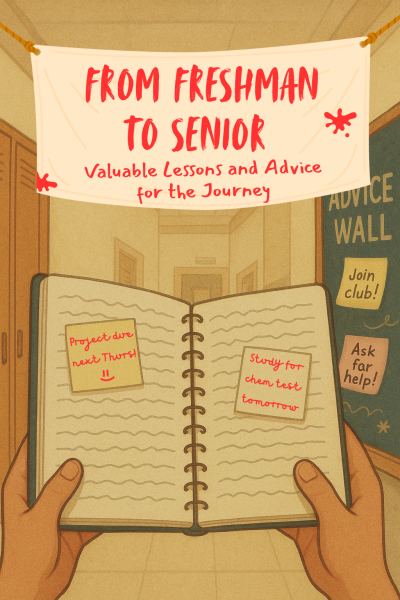 FROM FRESHMAN
TO SENIOR
Valuable Lessons and Advice
for the Journey
ADVICE
WALL
Join
club!
Ask
far
help!
Project due
next Thurs!
Study for
chem test
tomorrow